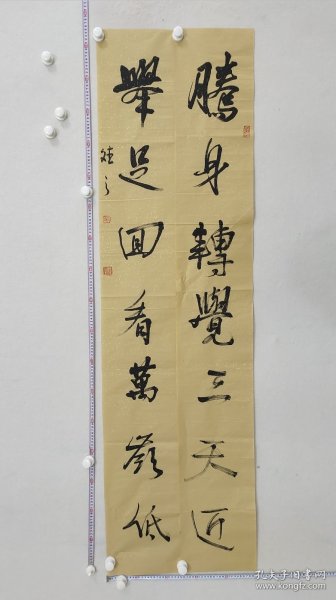 騰身轉覺三天近
舉足回看萬嶺低
孔夫子旧书网
www.kongfz.com